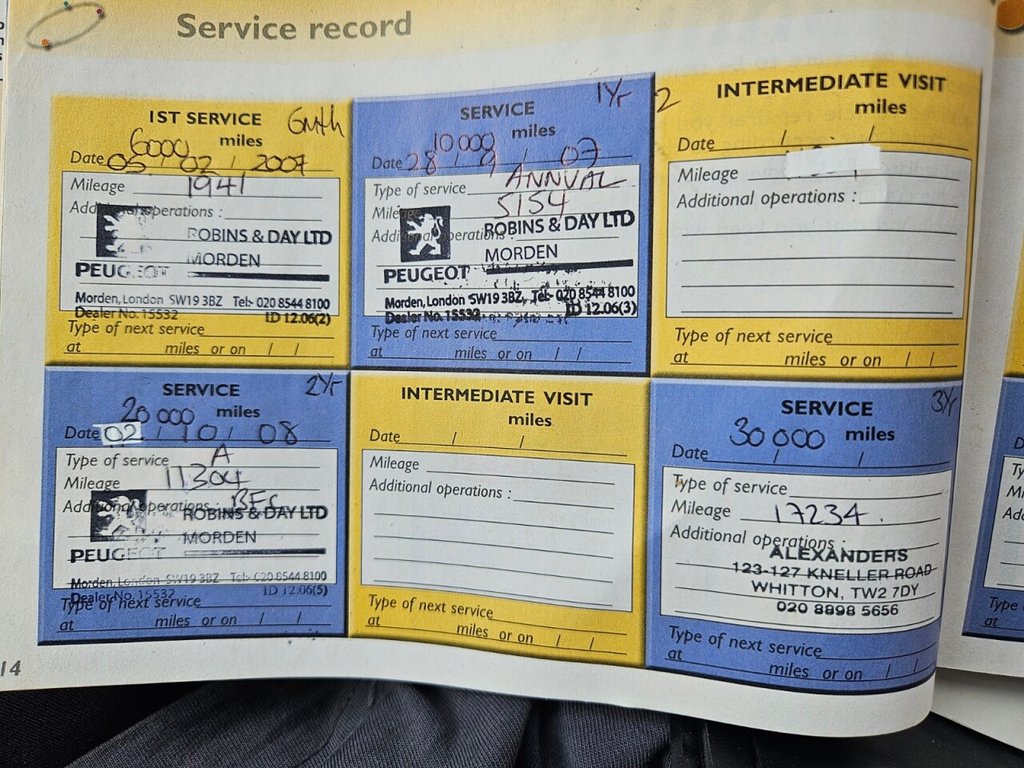 Service record
1ST SERVICE 6mth
6000 miles
Date 05 / 02 / 2007
Mileage 1941
Additional operations :
ROBINS & DAY LTD
MORDEN
PEUGEOT
Morden, London SW19 3BZ Tel:- 020 8544 8100
Dealer No. 15532 ID 12.06(2)
Type of next service
at miles or on / /
SERVICE 1Yr
10000 miles
Date 28 / 9 / 07
Type of service ANNUAL
Mileage 5154
Additional operations :
ROBINS & DAY LTD
MORDEN
PEUGEOT
Morden, London SW19 3BZ Tel:- 020 8544 8100
Dealer No. 15532 ID 12.06(3)
Type of next service
at miles or on / /
2
INTERMEDIATE VISIT
miles
Date / /
Mileage
Additional operations :
Type of next service
at miles or on / /
SERVICE 2Yr
20000 miles
Date 02 / 10 / 08
Type of service A
Mileage 11304
Additional operations :
ROBINS & DAY LTD
MORDEN
PEUGEOT
Morden, London SW19 3BZ Tel:- 020 8544 8100
Dealer No. 15532 ID 12.06(5)
Type of next service
at miles or on / /
INTERMEDIATE VISIT
miles
Date / /
Mileage
Additional operations :
Type of next service
at miles or on / /
SERVICE 3Yr
30000 miles
Date / /
Type of service
Mileage 17234.
Additional operations :
ALEXANDERS
123-127 KNELLER ROAD
WHITTON, TW2 7DY
020 8898 5656
Type of next service
at miles or on / /
14